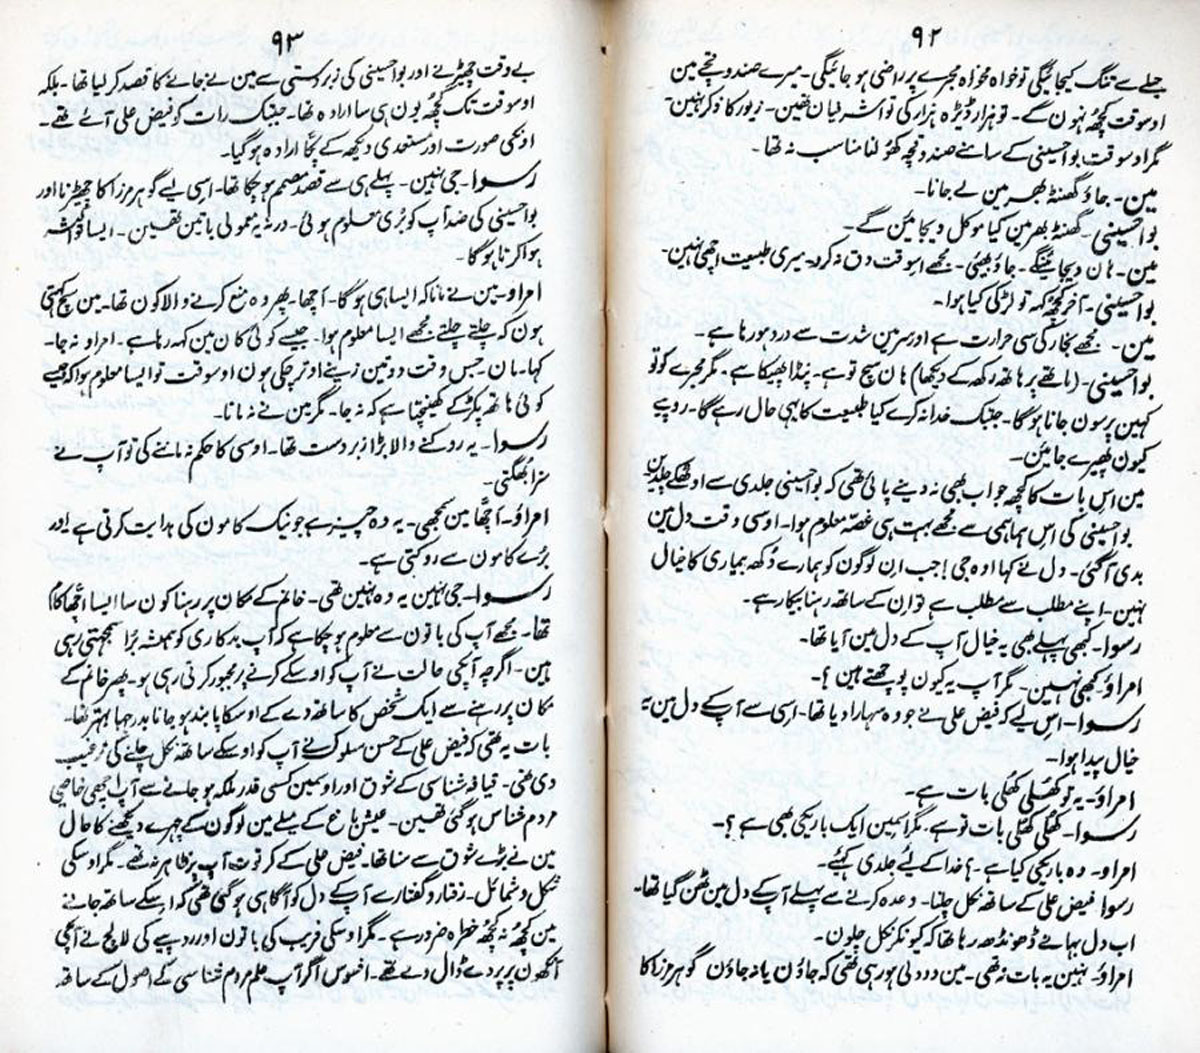 ۹۲
جلے سے تنگ کیجائیگی تو خواہ مخواہ مجرے پر راضی ہو جائیگی۔ میرے صندوقچے مین
اوسوقت کچھ نہون گے۔ تو ہزار ڈیڑہ ہزار کی تو اشرفیان تھین۔ زیور کا ذکر نہین۔
مگر اوسوقت بوا حسینی کے سامنے صندوقچہ کھولنا مناسب نہ تھا۔
مین۔ جاؤ گھنٹہ بھر مین لے جانا۔
بوا حسینی۔ گھنٹہ بھر مین کیا موکل دیجائین گے۔
مین۔ ہان دیجائینگے۔ جاؤ بھئی۔ مجھے اسوقت دق نہ کرو۔ میری طبیعت اچھی نہین۔
بوا حسینی۔ آخر کچھ کہہ تو لڑکی کیا ہوا۔
مین۔ مجھے بخار کی سی حرارت ہے اور سر مین شدت سے درد ہو رہا ہے۔
بوا حسینی۔ (ماتھے پر ہاتھ رکھ کے دیکھا) ہان سچ تو ہے۔ پنڈا پھیکا ہے۔ مگر مجرے کو تو
کہین پرسون جانا ہوگا۔ جبتک خدا نہ کرے کیا طبیعت کا یہی حال رہے گا۔ روپیے
کیون پھیرے جائین۔
مین اس بات کا کچھ جواب بھی نہ دینے پائی تھی کہ بوا حسینی جلدی سے اوٹھ کے چلدین
بوا حسینی کی اس ہماہمی سے مجھے بہت ہی غصہ معلوم ہوا۔ اوسی وقت دل مین
بدی آگئی۔ دل نے کہا اوہ جی! جب ان لوگون کو ہمارے دکھ بیماری کا خیال
نہین۔ اپنے مطلب سے مطلب ہے تو ان کے ساتھ رہنا بیکار ہے۔
رسوا۔ کبھی پہلے بھی یہ خیال آپ کے دل مین آیا تھا۔
امراؤ۔ کبھی نہین۔ مگر آپ یہ کیون پوچھتے ہین؟۔
رسوا۔ اس لیے کہ فیض علی نے جو وہ سہارا دیا تھا۔ اسی سے آپکے دل مین یہ
خیال پیدا ہوا۔
امراؤ۔ یہ تو کھلی کھلی بات ہے۔
رسوا۔ کھلی کھلی بات تو ہے۔ مگر اسمین ایک باریکی بھی ہے؟۔
امراو۔ وہ باریکی کیا ہے۔؟ خدا کے لئے جلدی کہئے۔
رسوا فیض علی کے ساتھ نکل چلنا۔ وعدہ کرنے سے پہلے آپکے دل مین ٹھن گیا تھا۔
اب دل بہانے ڈھونڈھ رہا تھا کہ کیونکر نکل چلون۔
امراؤ۔ نہین یہ بات نہ تھی۔ مین دو دلی ہو رہی تھی کہ جاؤن یا نہ جاؤن گوہر مرزا کا
۹۳
بے وقت چھیڑنے اور بوا حسینی کی زبردستی سے مین نے جانے کا قصد کر لیا تھا۔ بلکہ
اوسوقت تک کچھ یون ہی سا ارادہ تھا۔ جبتک رات کو فیض علی آئے تھے۔
اونکی صورت اور مستعدی دیکھ کے پکا ارادہ ہوگیا۔
رسوا۔ جی نہین۔ پہلے ہی سے قصد مصمم ہو چکا تھا۔ اسی لیے گوہر مرزا کا چھیڑنا اور
بوا حسینی کی ضد آپ کو بری معلوم ہوئی۔ ورنہ یہ معمولی باتین تھین۔ ایسا تو اکثر
ہوا کرتا ہوگا۔
امراو۔ مین نے مانا کہ ایسا ہی ہوگا۔ اچھا۔ پھر وہ منع کرنے والا کون تھا۔ مین سچ کہتی
ہون کہ چلتے چلتے مجھے ایسا معلوم ہوا۔ جیسے کوئی کان مین کہہ رہا ہے۔ امراو نہ جا۔
کہا۔ مان۔ جس وقت دو تین زینے اوتر چکی ہون اوسوقت تو ایسا معلوم ہوا کہ جیسے
کوئی ہاتھ پکڑ کے کھینچتا ہے کہ نہ جا۔ مگر مین نے نہ مانا۔
رسوا۔ یہ روکنے والا بڑا زبردست تھا۔ اوسی کا حکم نہ ماننے کی تو آپ نے
سزا بھگتی۔
امراؤ۔ اچھا مین سمجھی۔ یہ وہ چیز ہے جو نیک کامون کی ہدایت کرتی ہے اور
برے کامون سے روکتی ہے۔
رسوا۔ جی نہین یہ وہ نہین تھی۔ خانم کے مکان پر رہنا کون سا ایسا اچھا کام
تھا۔ مجھے آپ کی باتون سے معلوم ہو چکا ہے کہ آپ بدکاری کو ہمیشہ برا سمجھتی رہی
ہین۔ اگرچہ آپکی حالت نے آپ کو اوسکے کرنے پر مجبور کرتی رہی ہو۔ پھر خانم کے
مکان پر رہنے سے ایک شخص کا ساتھ دے کے اوسکا پابند ہو جانا بدرجہا بہتر تھا۔
بات یہ تھی کہ فیض علی کے حسن سلوک نے آپ کو اوسکے ساتھ نکل چلنے کی ترغیب
دی تھی۔ قیافہ شناسی کے شوق اور اوسمین کسی قدر ملکہ ہو جانے سے آپ اچھی خاصی
مردم شناس ہوگئی تھین۔ عیش باغ کے میلے مین لوگون کے چہرے دیکھنے کا حال
مین نے بڑے شوق سے سنا تھا۔ فیض علی کے کرتوت آپ پر ظاہر نہ تھے۔ مگر اوسکی
شکل و شمائل۔ رفتار و گفتار سے آپکے دل کو آگاہی ہوگئی تھی کہ اسکے ساتھ جانے
مین کچھ نہ کچھ خطرہ ضرور ہے۔ مگر اوسکی فریب کی باتون اور روپیے کی لالچ نے آپکی
آنکھون پر پردے ڈال دے تھے۔ افسوس اگر آپ علم مردم شناسی کے اصول کے ساتھ